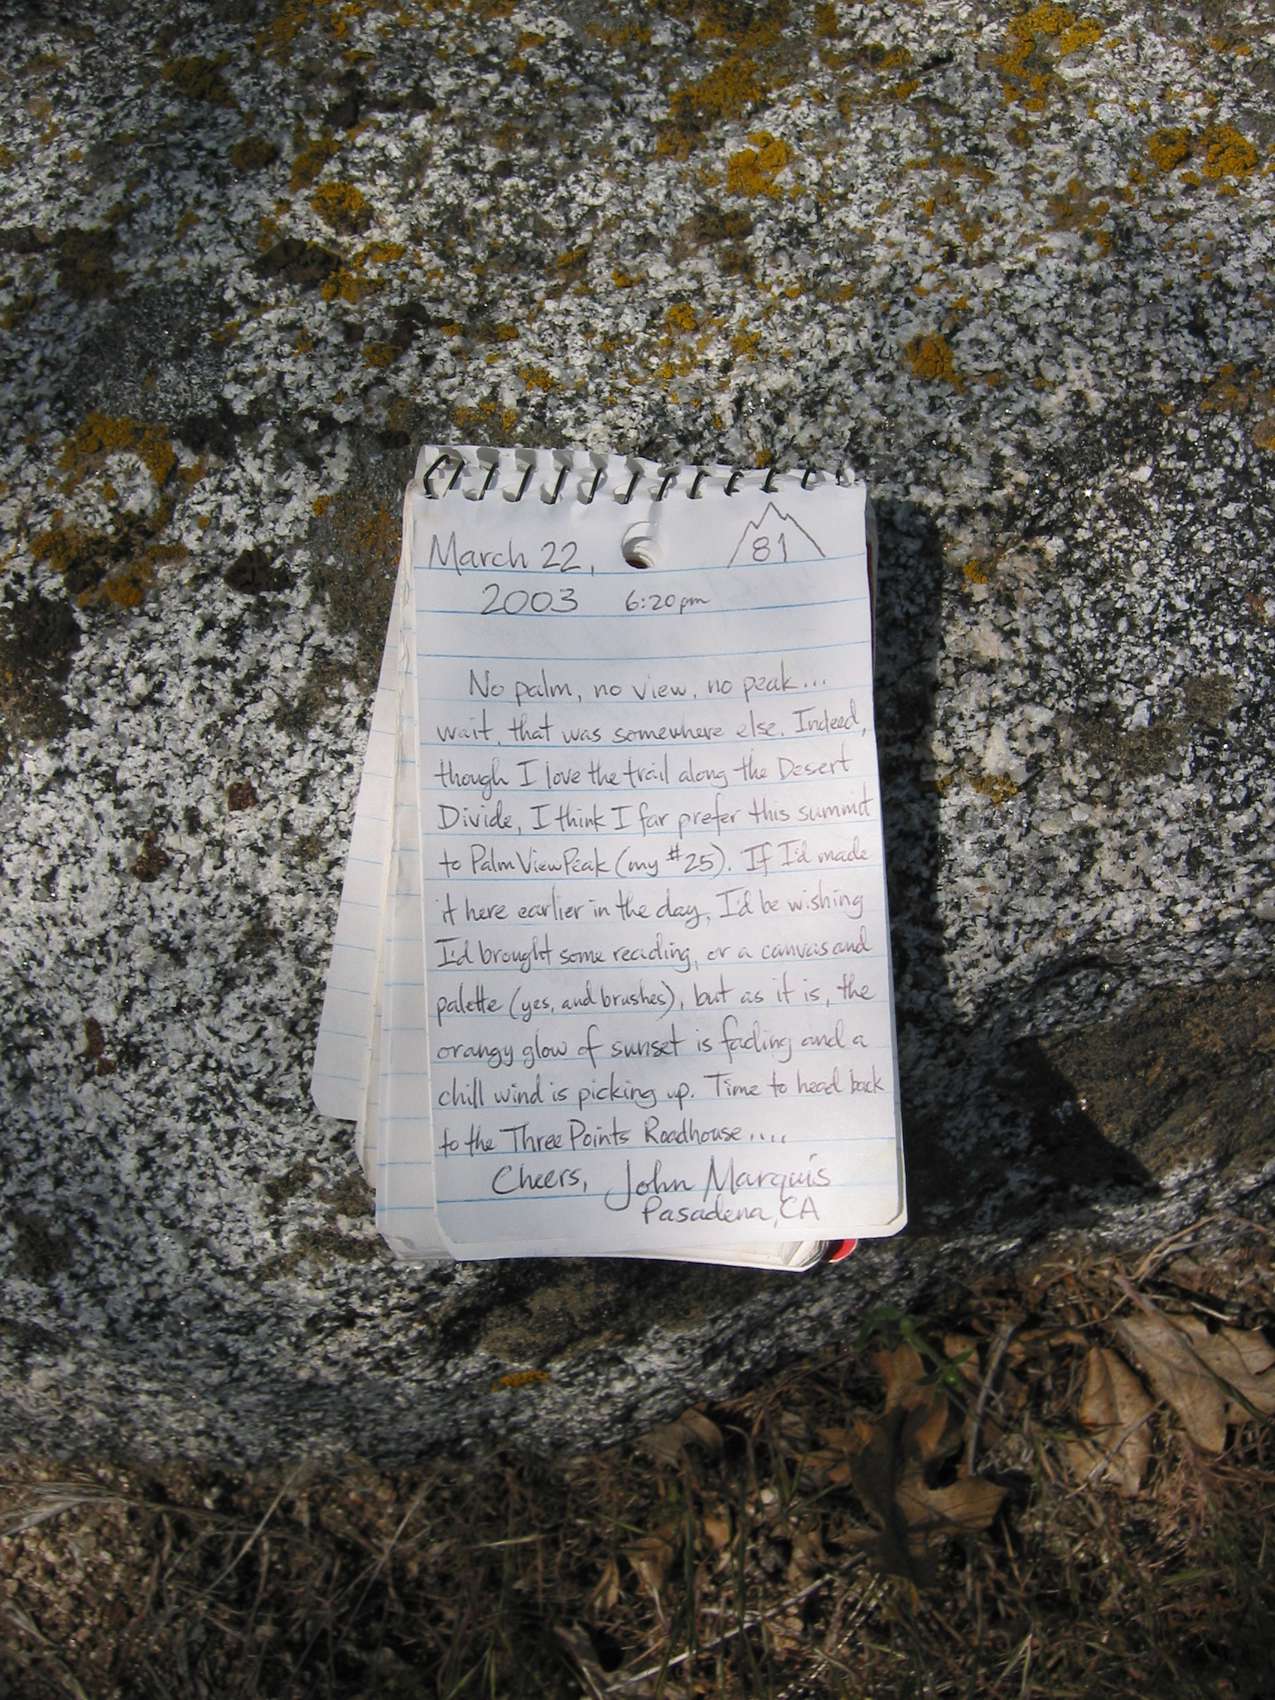 March 22, 81
2003 6:20pm
No palm, no view, no peak...
wait, that was somewhere else. Indeed,
though I love the trail along the Desert
Divide, I think I far prefer this summit
to Palm View Peak (my #25). If I'd made
it here earlier in the day, I'd be wishing
I'd brought some reading, or a canvas and
palette (yes, and brushes), but as it is, the
orangy glow of sunset is fading and a
chill wind is picking up. Time to head back
to the Three Points Roadhouse....
Cheers, John Marquis
Pasadena, CA